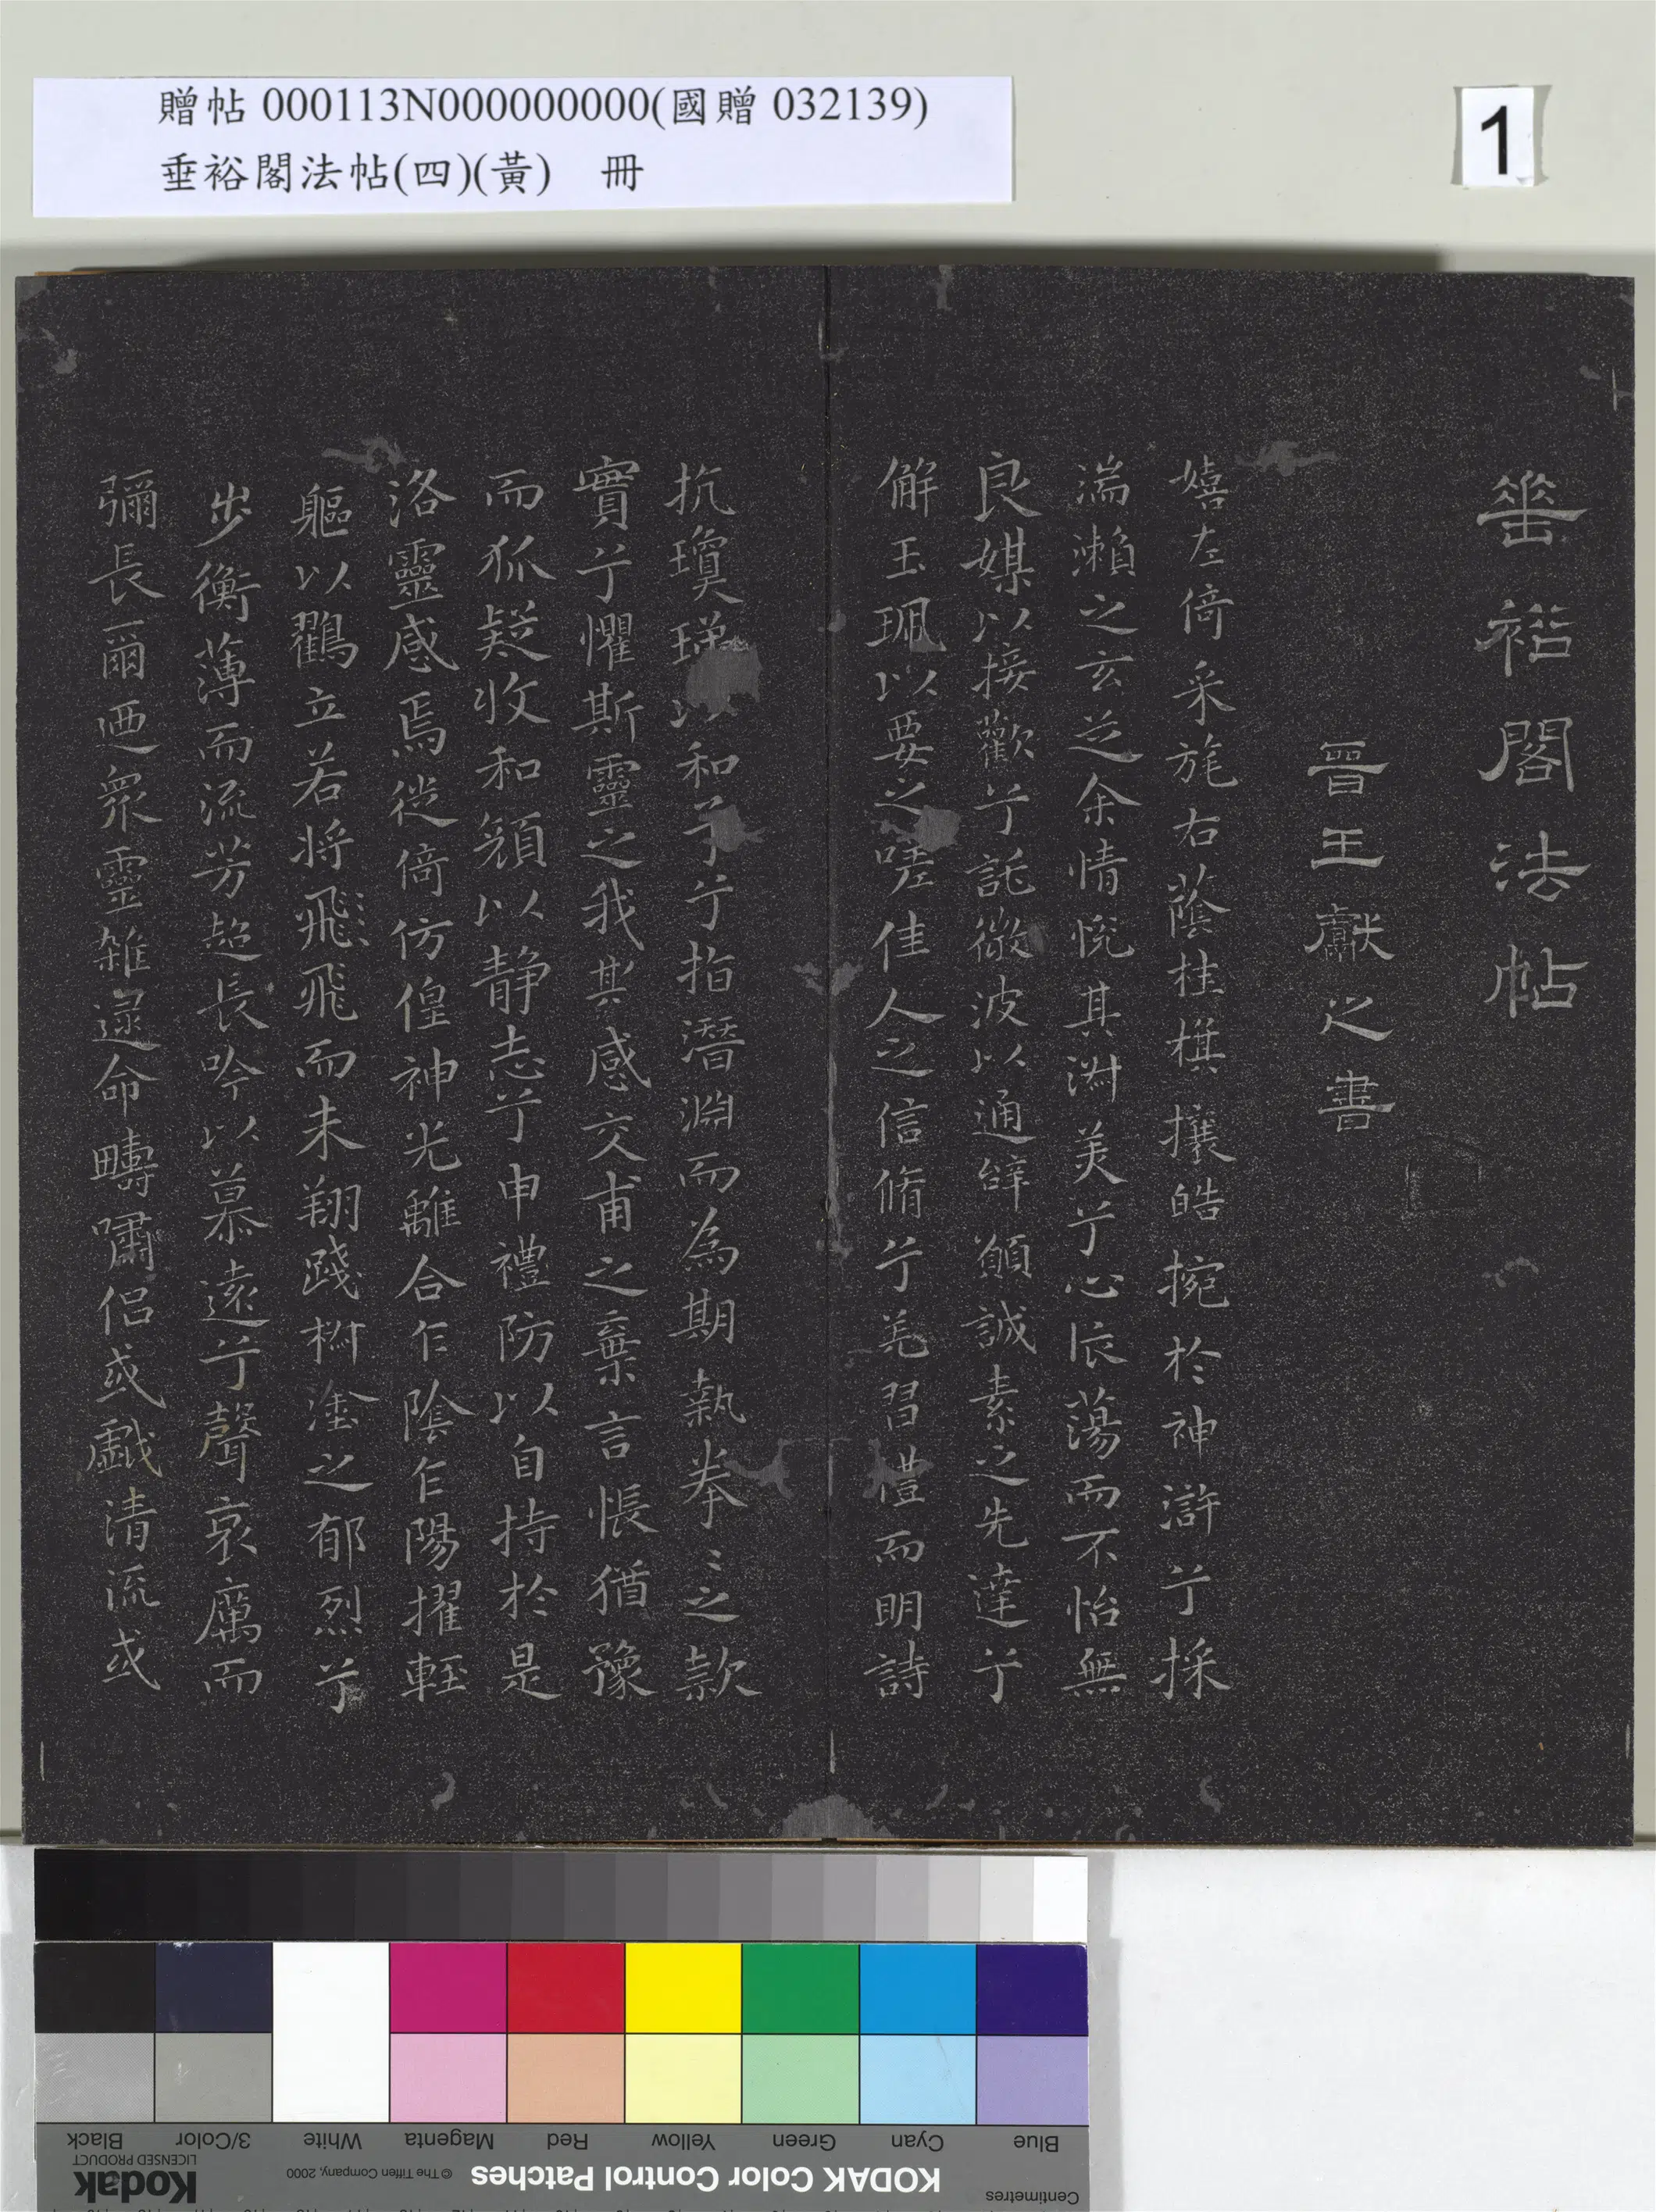 贈帖 000113N000000000(國贈 032139)
垂裕閣法帖(四)(黃) 冊
1
垂裕閣法帖
晉王獻之書
嬉左倚采旄右蔭桂棋攘皓捥於神滸兮採
湍瀨之玄芝余情悅其淵美兮心振蕩而不怡無
良媒以接歡兮託微波以通辭願誠素之先達兮
解玉珮以要之嗟佳人之信脩兮羌習禮而明詩
抗瓊珶以和予兮指潛淵而為期執拳〻之款
實兮懼斯靈之我其感交甫之棄言悵猶豫
而狐疑收和顏以静志兮申禮防以自持於是
洛靈感焉徙倚仿偟神光離合乍陰乍陽擢輕
軀以鸖立若將飛飛而未翔踐椒塗之郁烈兮
步衡薄而流芳超長吟以慕遠兮聲哀厲而
彌長爾迺衆靈雜遝命疇嘯侶或戲清流或
Blue
Cyan
Green
Yellow
Red
Magenta
White
3/Color
Black
Centimetres
KODAK Color Control Patches
© The Tiffen Company, 2000
Kodak
LICENSED PRODUCT